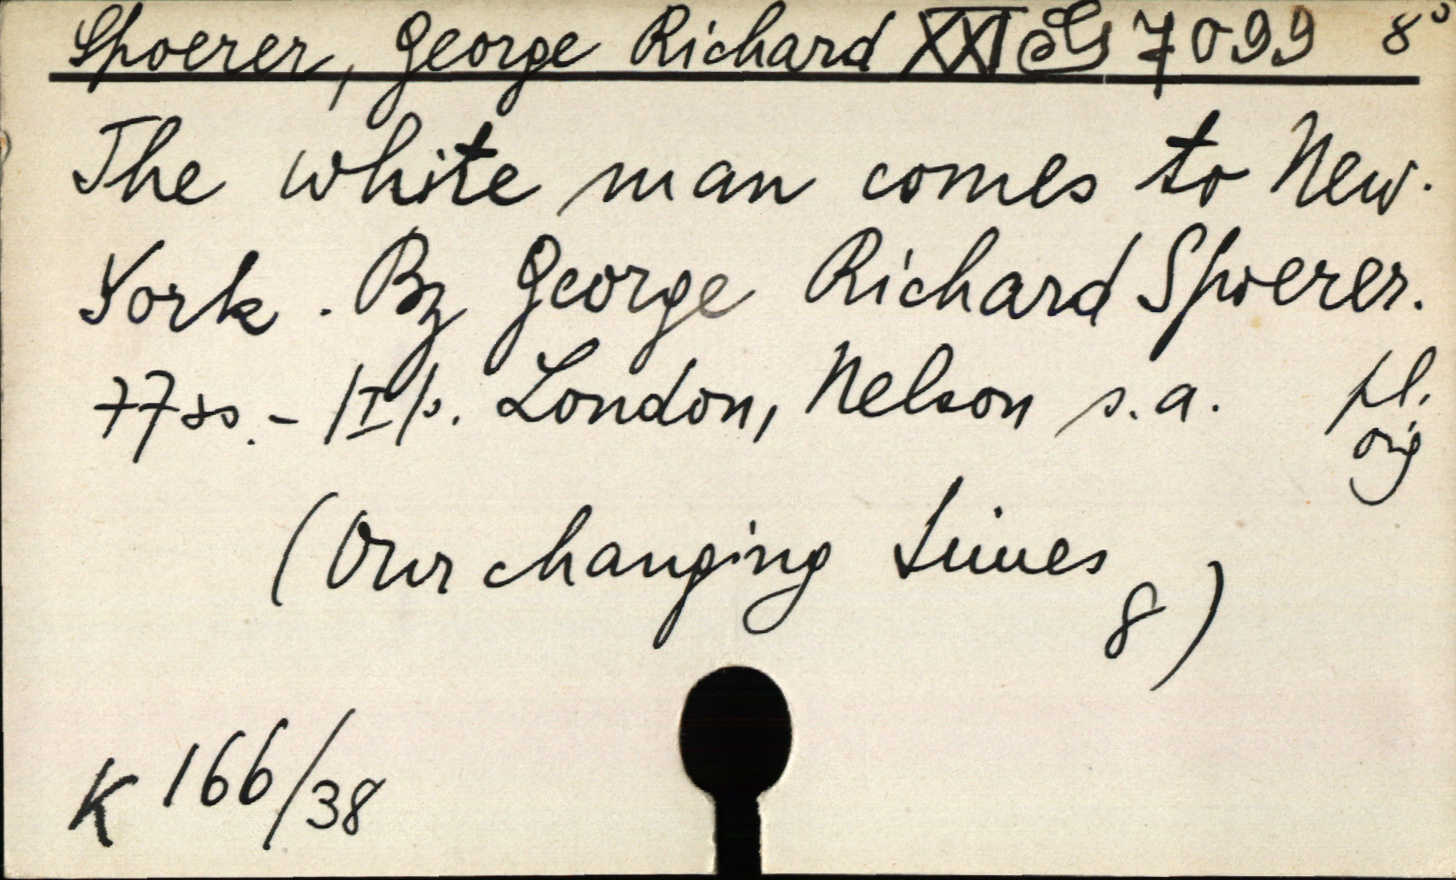 Spoerer, George Richard XXI G 7099 8°
The white man comes to New-
York. By George Richard Spoerer.
77 ss. - |I| s. London, Nelson s.a. pl.
orig
(Our changing times
8)
K 166/38